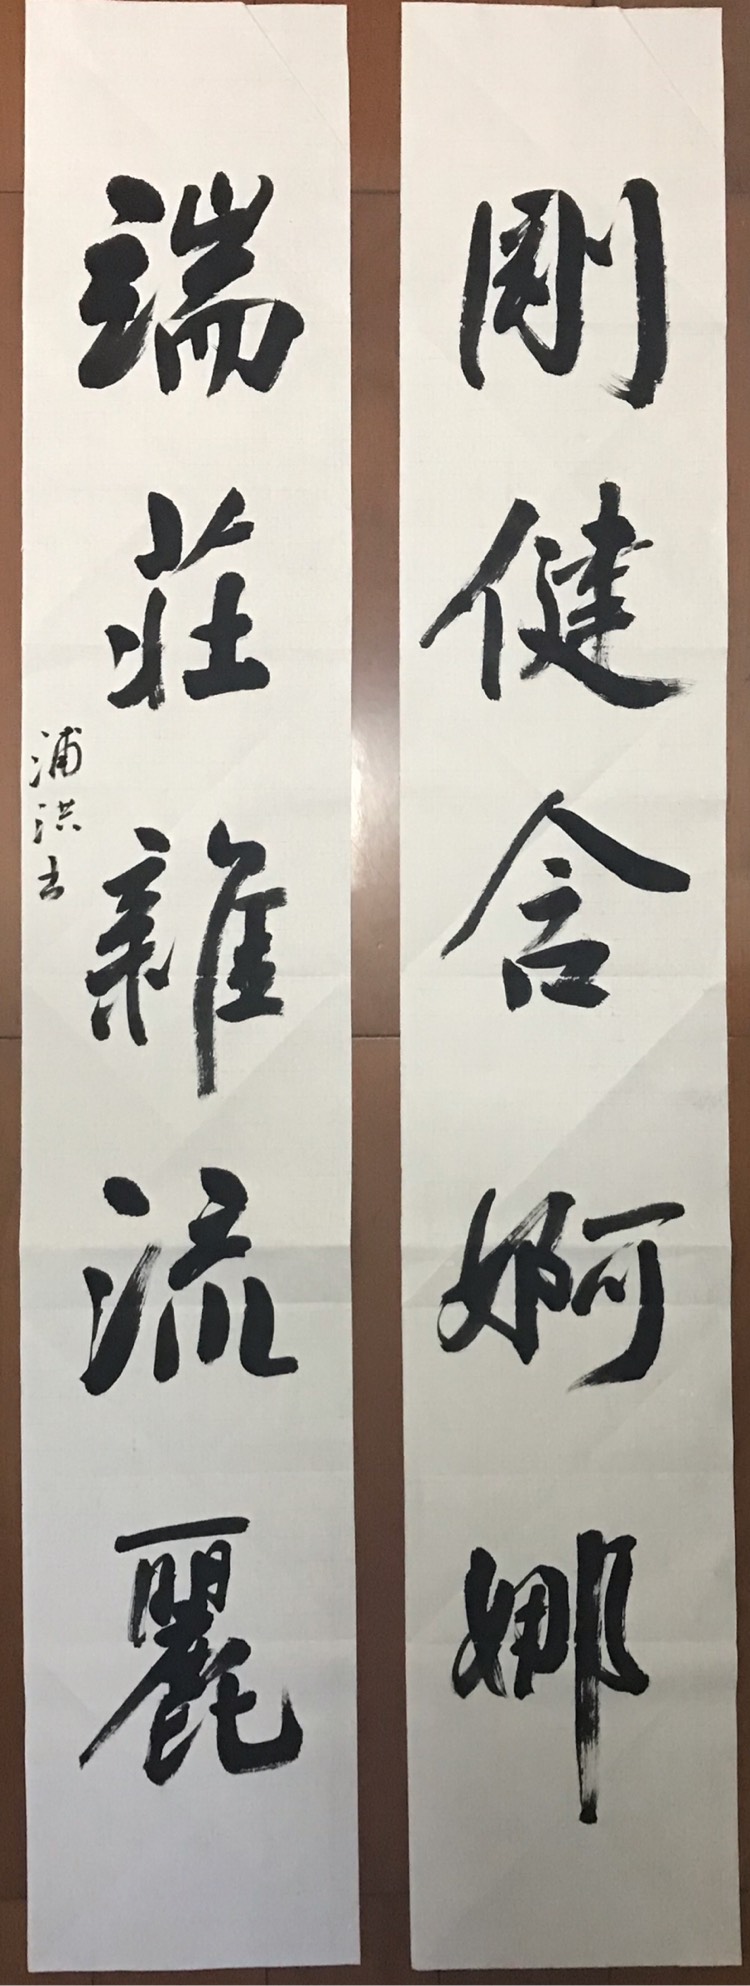 剛健含婀娜
端莊雜流麗
浦洪书